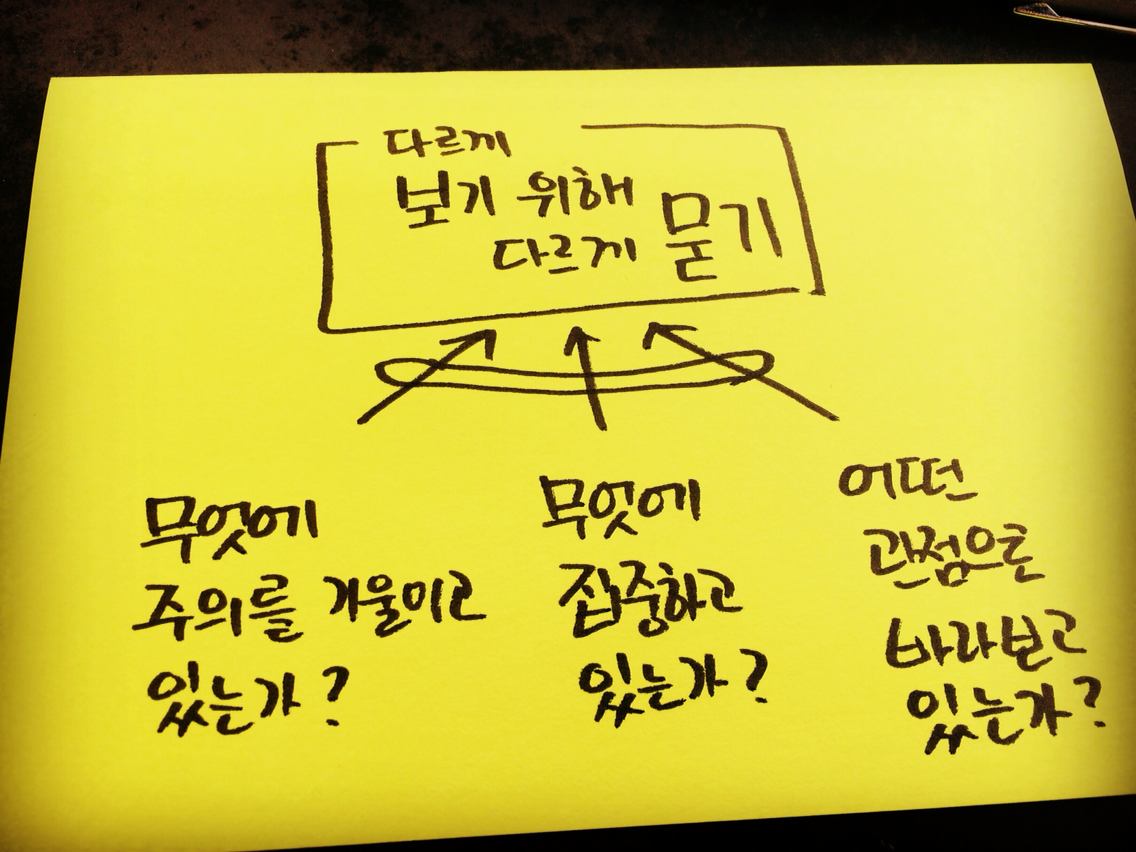 다르게
보기 위해
다르게 묻기
무엇에
주의를 기울이고
있는가?
무엇에
집중하고
있는가?
어떤
관점으로
바라보고
있는가?